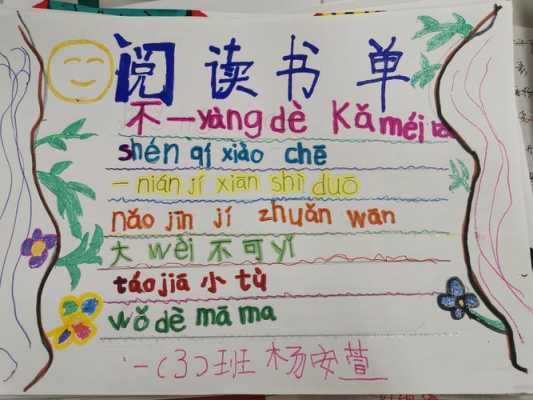 阅读书单
不一yàng dè Kǎ méi la
shén qí xiào chē
一nián jí xian shì duō
nǎo jīn jí zhuǎn wan
大wèi不可yǐ
táo jiā小tù
wǒ dè mā ma
一(3)班 杨安萱